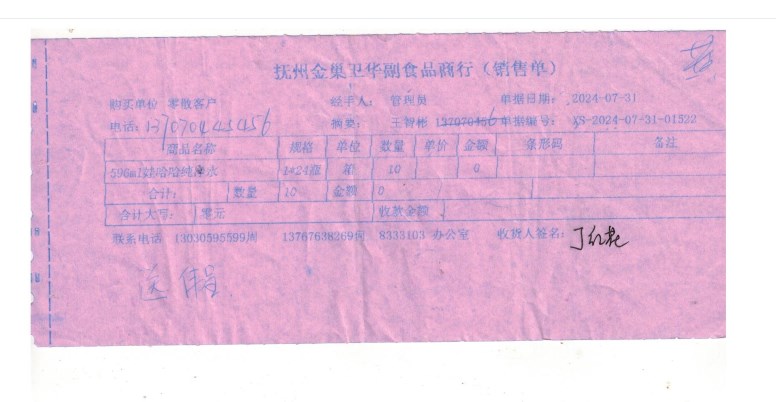 抚州金巢卫华副食品商行（销售单）
购买单位 零散客户 经手人： 管理员 单据日期： 2024-07-31
电话： 13707044545456 摘要： 王智彬 单据编号： XS-2024-07-31-01522
商品名称 规格 单位 数量 单价 金额 条形码 备注
596ml娃哈哈纯净水 1*24瓶 箱 10 0
合计： 数量 10 金额 0
合计大写： 零元 收款金额
联系电话 13030595599周 13767638269何 8333103 办公室 收货人签名： 丁红花
送